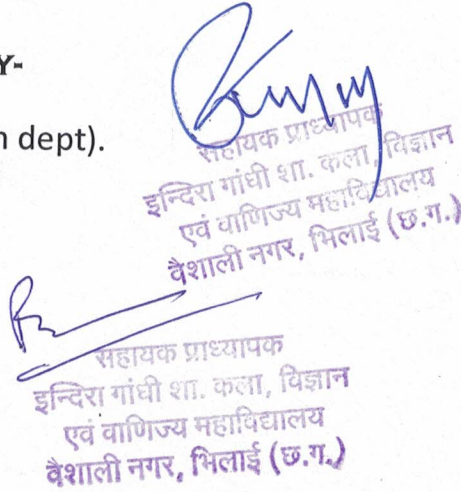 Y-
n dept).
सहायक प्राध्यापक
इन्दिरा गांधी शा. कला, विज्ञान
एवं वाणिज्य महाविद्यालय
वैशाली नगर, भिलाई (छ.ग.)
सहायक प्राध्यापक
इन्दिरा गांधी शा. कला, विज्ञान
एवं वाणिज्य महाविद्यालय
वैशाली नगर, भिलाई (छ.ग.)